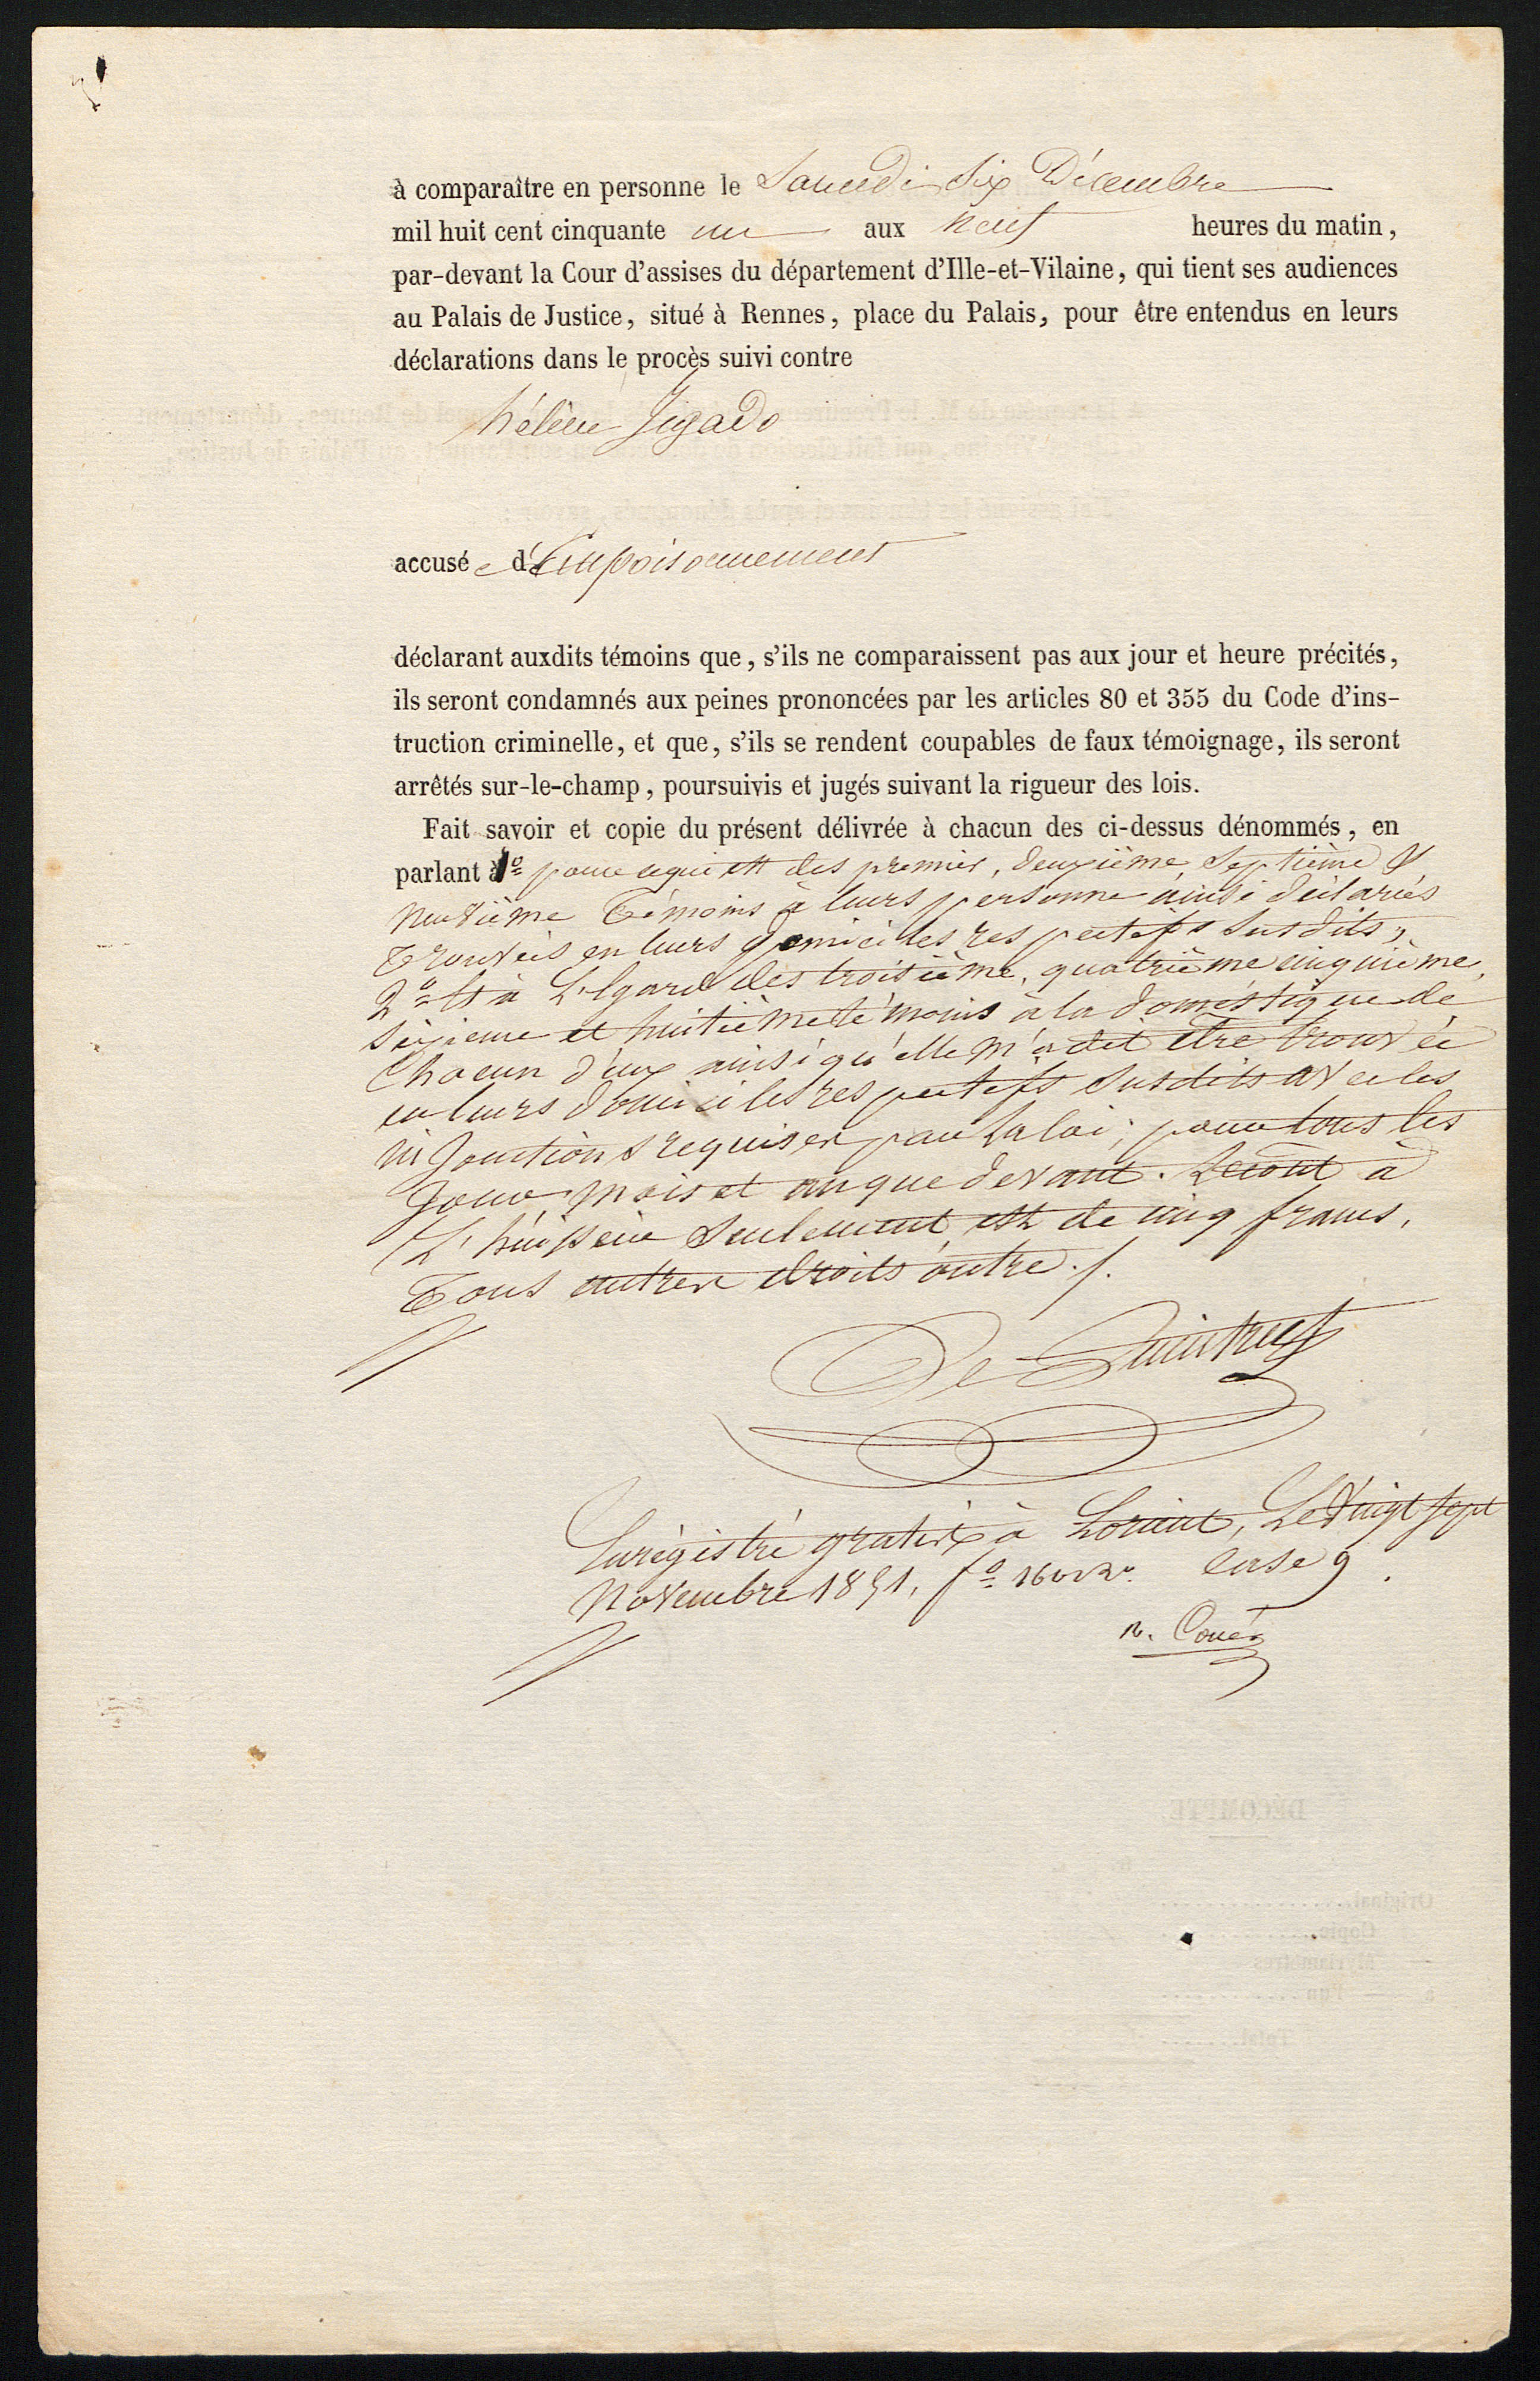 à comparaître en personne le Samedi Six Décembre
mil huit cent cinquante un aux neuf heures du matin,
par-devant la Cour d'assises du département d'Ille-et-Vilaine, qui tient ses audiences
au Palais de Justice, situé à Rennes, place du Palais, pour être entendus en leurs
déclarations dans le procès suivi contre
hélène Jégado
accusée d'Empoisonnement
déclarant auxdits témoins que, s'ils ne comparaissent pas aux jour et heure précités,
ils seront condamnés aux peines prononcées par les articles 80 et 355 du Code d'ins-
truction criminelle, et que, s'ils se rendent coupables de faux témoignage, ils seront
arrêtés sur-le-champ, poursuivis et jugés suivant la rigueur des lois.
Fait savoir et copie du présent délivrée à chacun des ci-dessus dénommés, en
parlant à 1º pour ce qui est des premier, deuxième, Septième &
neuvième Témoins à leurs personne ainsi déclarués
Trouvés en leurs domiciles respectifs susdits,
2º Et à L'égard des troisième, quatrième cinquième,
Sixième et huitième témoins à la doméstique de
Chacun d'eux ainsi qu'elle m'a dit être trouvée
en leurs domiciles respectifs susdits avec les
injonctions requises par la loi; pour tous les
Jour, mois et an que devant. Le cout à
L'huissier Seulement, est de cinq francs,
Tous autres droits outre./.
Enrégistré gratis à Lorient, Le Vingt sept
Novembre 1851, fº 160 Rº case 9.
R. Couéz
DÉCOMPTE.
Original
Copie
Myriamètres
Total